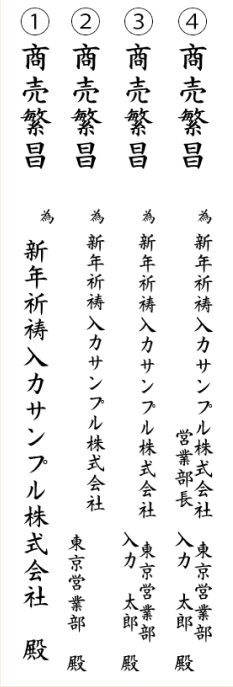 ①
商売繁昌
為
新年祈祷入力サンプル株式会社 殿
②
商売繁昌
為
新年祈祷入力サンプル株式会社
東京営業部 殿
③
商売繁昌
為
新年祈祷入力サンプル株式会社
東京営業部
入力 太郎 殿
④
商売繁昌
為
新年祈祷入力サンプル株式会社
営業部長
東京営業部
入力 太郎 殿